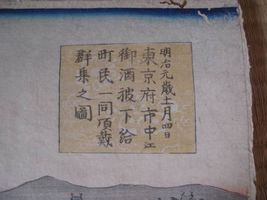 明治元歳十一月四日
東京府市中江
御酒被下給
町民一同頂戴
群集之圖